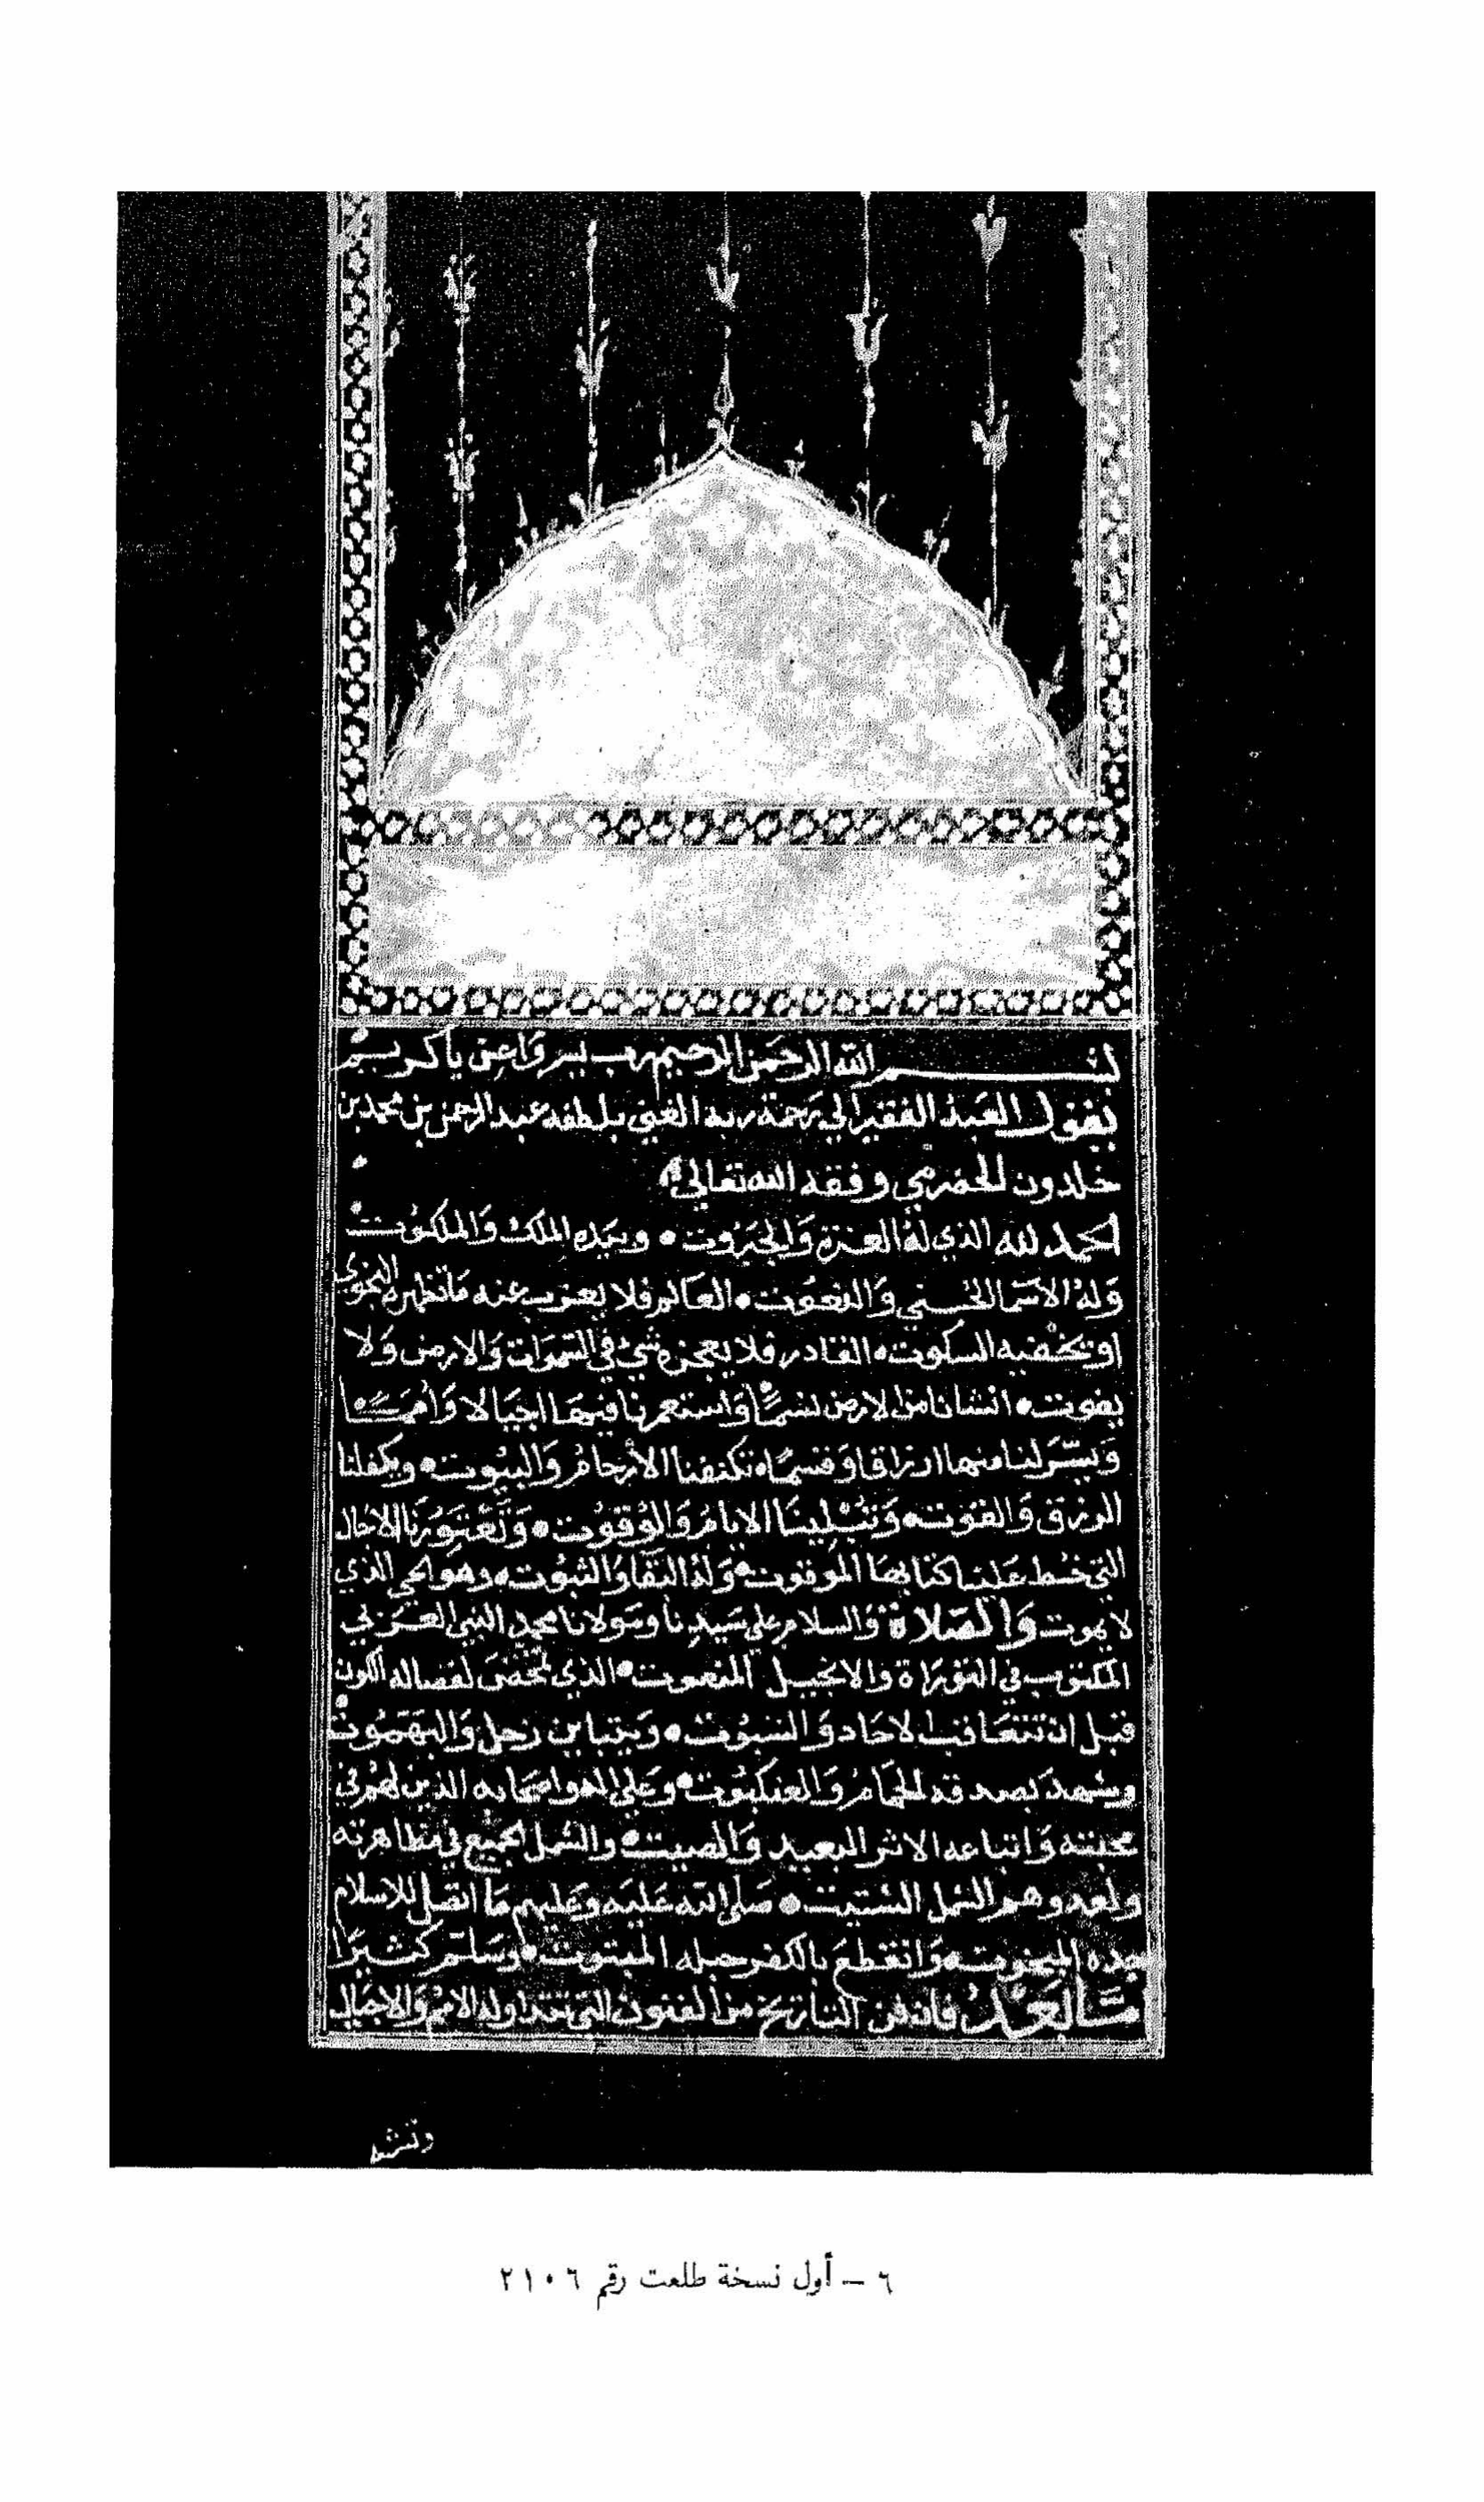 بســــم الله الرحمن الرحيم رب يسر واعن يا كريم
يقول العبد الفقير الي رحمة ربه الغني بلطفه عبد الرحمن بن محمد بن
خلدون الحضرمي وفقه الله تعالي
الحمد لله الذي له العزة والجبروت • وبيده الملك والملكوت
وله الاسما الحسني والنعوت • العالم فلا يعزب عنه ما تظهره النجوي
او تخفيه السكوت • القادر فلا يعجزه شي في السموات والارض ولا
يفوت • انشانا من الارض نسما واستعمرنا فيها اجيالا وأمما •
ويسر لنا منها ارزاقا وقسما • تكنفنا الأرحام والبيوت • ويكفلنا
الرزق والقوت • وتبلينا الايام والوقوت • وتعتورنا الاجال
التي خط علينا كتابها الموقوت • وله البقا والثبوت • وهو الحي الذي
لا يموت والصلاة والسلام علي سيدنا ومولانا محمد النبي العربي
المكتوب في التوراة والانجيل المنعوت • الذي تمخض لفصاله الكون
قبل ان تتعاقب الاحاد والسبوت • ويتباين زحل والبهموت
ويشهد بصدقه الحمام والعنكبوت • وعلي اله واصحابه الذين لهم في
محبته واتباعه الاثر البعيد والصيت • والشمل الجميع في مظاهرته
ولعدوهم الشمل الشتيت • صلي الله عليه وعليهم ما اتصل للاسلام
جده المبخوت • وانقطع بالكفر حبله المبتوت • وسلم كثيرا
امــا بعد فان فن التاريخ من الفنون التي تتداوله الامم والاجيال
وتشد
٦ – أول نسخة طلعت رقم ٢١٠٦